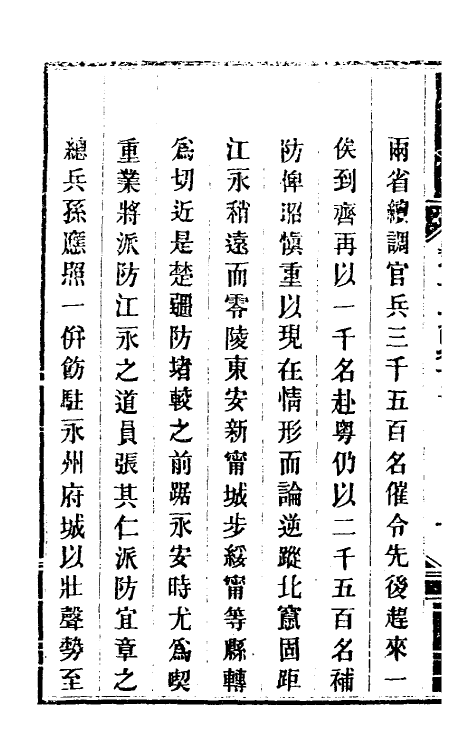 兩省總調官兵三千五百名催令先後趕來一
俟到齊再以一千名赴粵仍以二千五百名補
防俾沼愼重以現在情形而論逆蹤北竄固距
江永稍遠而零陵東安新甯城步綏甯等縣轉
爲切近是楚疆防堵較之前踞永安時尤爲喫
重業將派防江永之道員張其仁派防宜章之
總兵孫應照一併飭駐永州府城以壯聲勢至